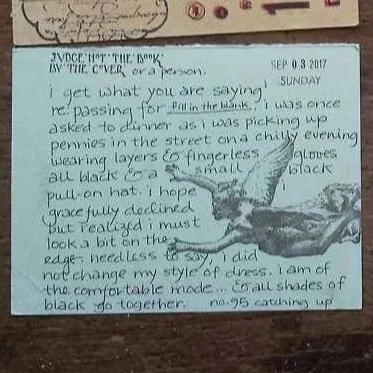 JUDGE NOT THE BOOK
BY THE COVER or a person.
SEP 03 2017
SUNDAY
i get what you are saying
re: passing for fill in the blank. i was once
asked to dinner as i was picking up
pennies in the street on a chilly evening
wearing layers & fingerless gloves
all black & a small black
pull-on hat. i hope i
gracefully declined
but realized i must
look a bit on the
edge. needless to say, i did
not change my style of dress. i am of
the comfortable mode... & all shades of
black go together. no. 95 catching up